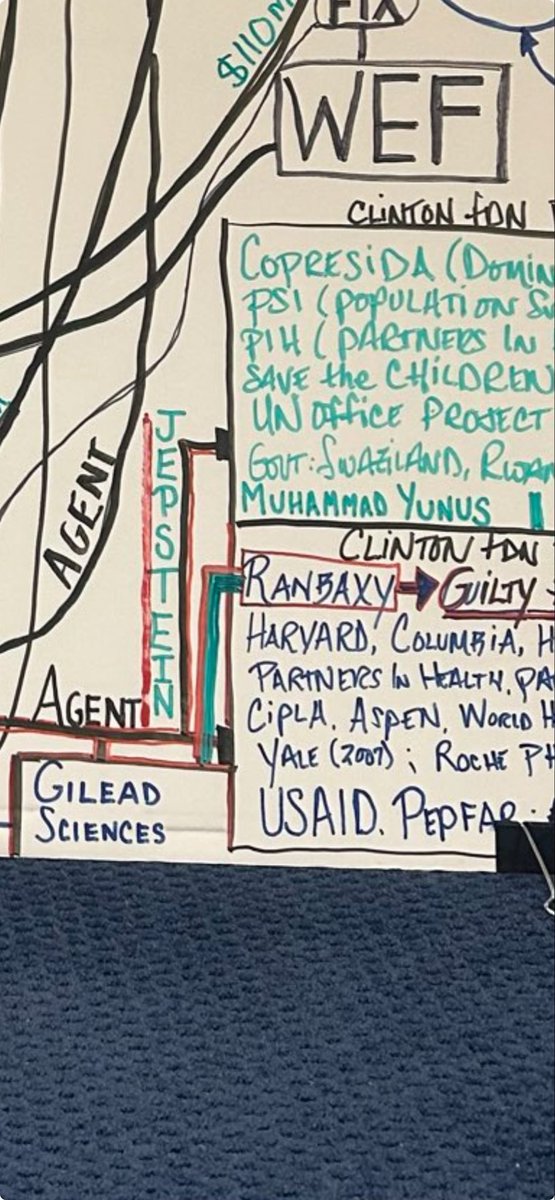 $110M
FTX
WEF
CLINTON FDN
COPRESIDA (DOMIN
PSI (POPULATION S
PIH (PARTNERS IN
SAVE the CHILDREN
UN OFFICE PROJECT
GOVT: SWAZILAND, RWAN
MUHAMMAD YUNUS
JEPSTEIN
AGENT
CLINTON FDN
RANBAXY GUILTY
HARVARD, COLUMBIA, H
PARTNERS IN HEALTH, PA
CIPLA, ASPEN, WORLD H
YALE (2007); ROCHE PH
USAID. PEPFAR
AGENT
GILEAD
SCIENCES